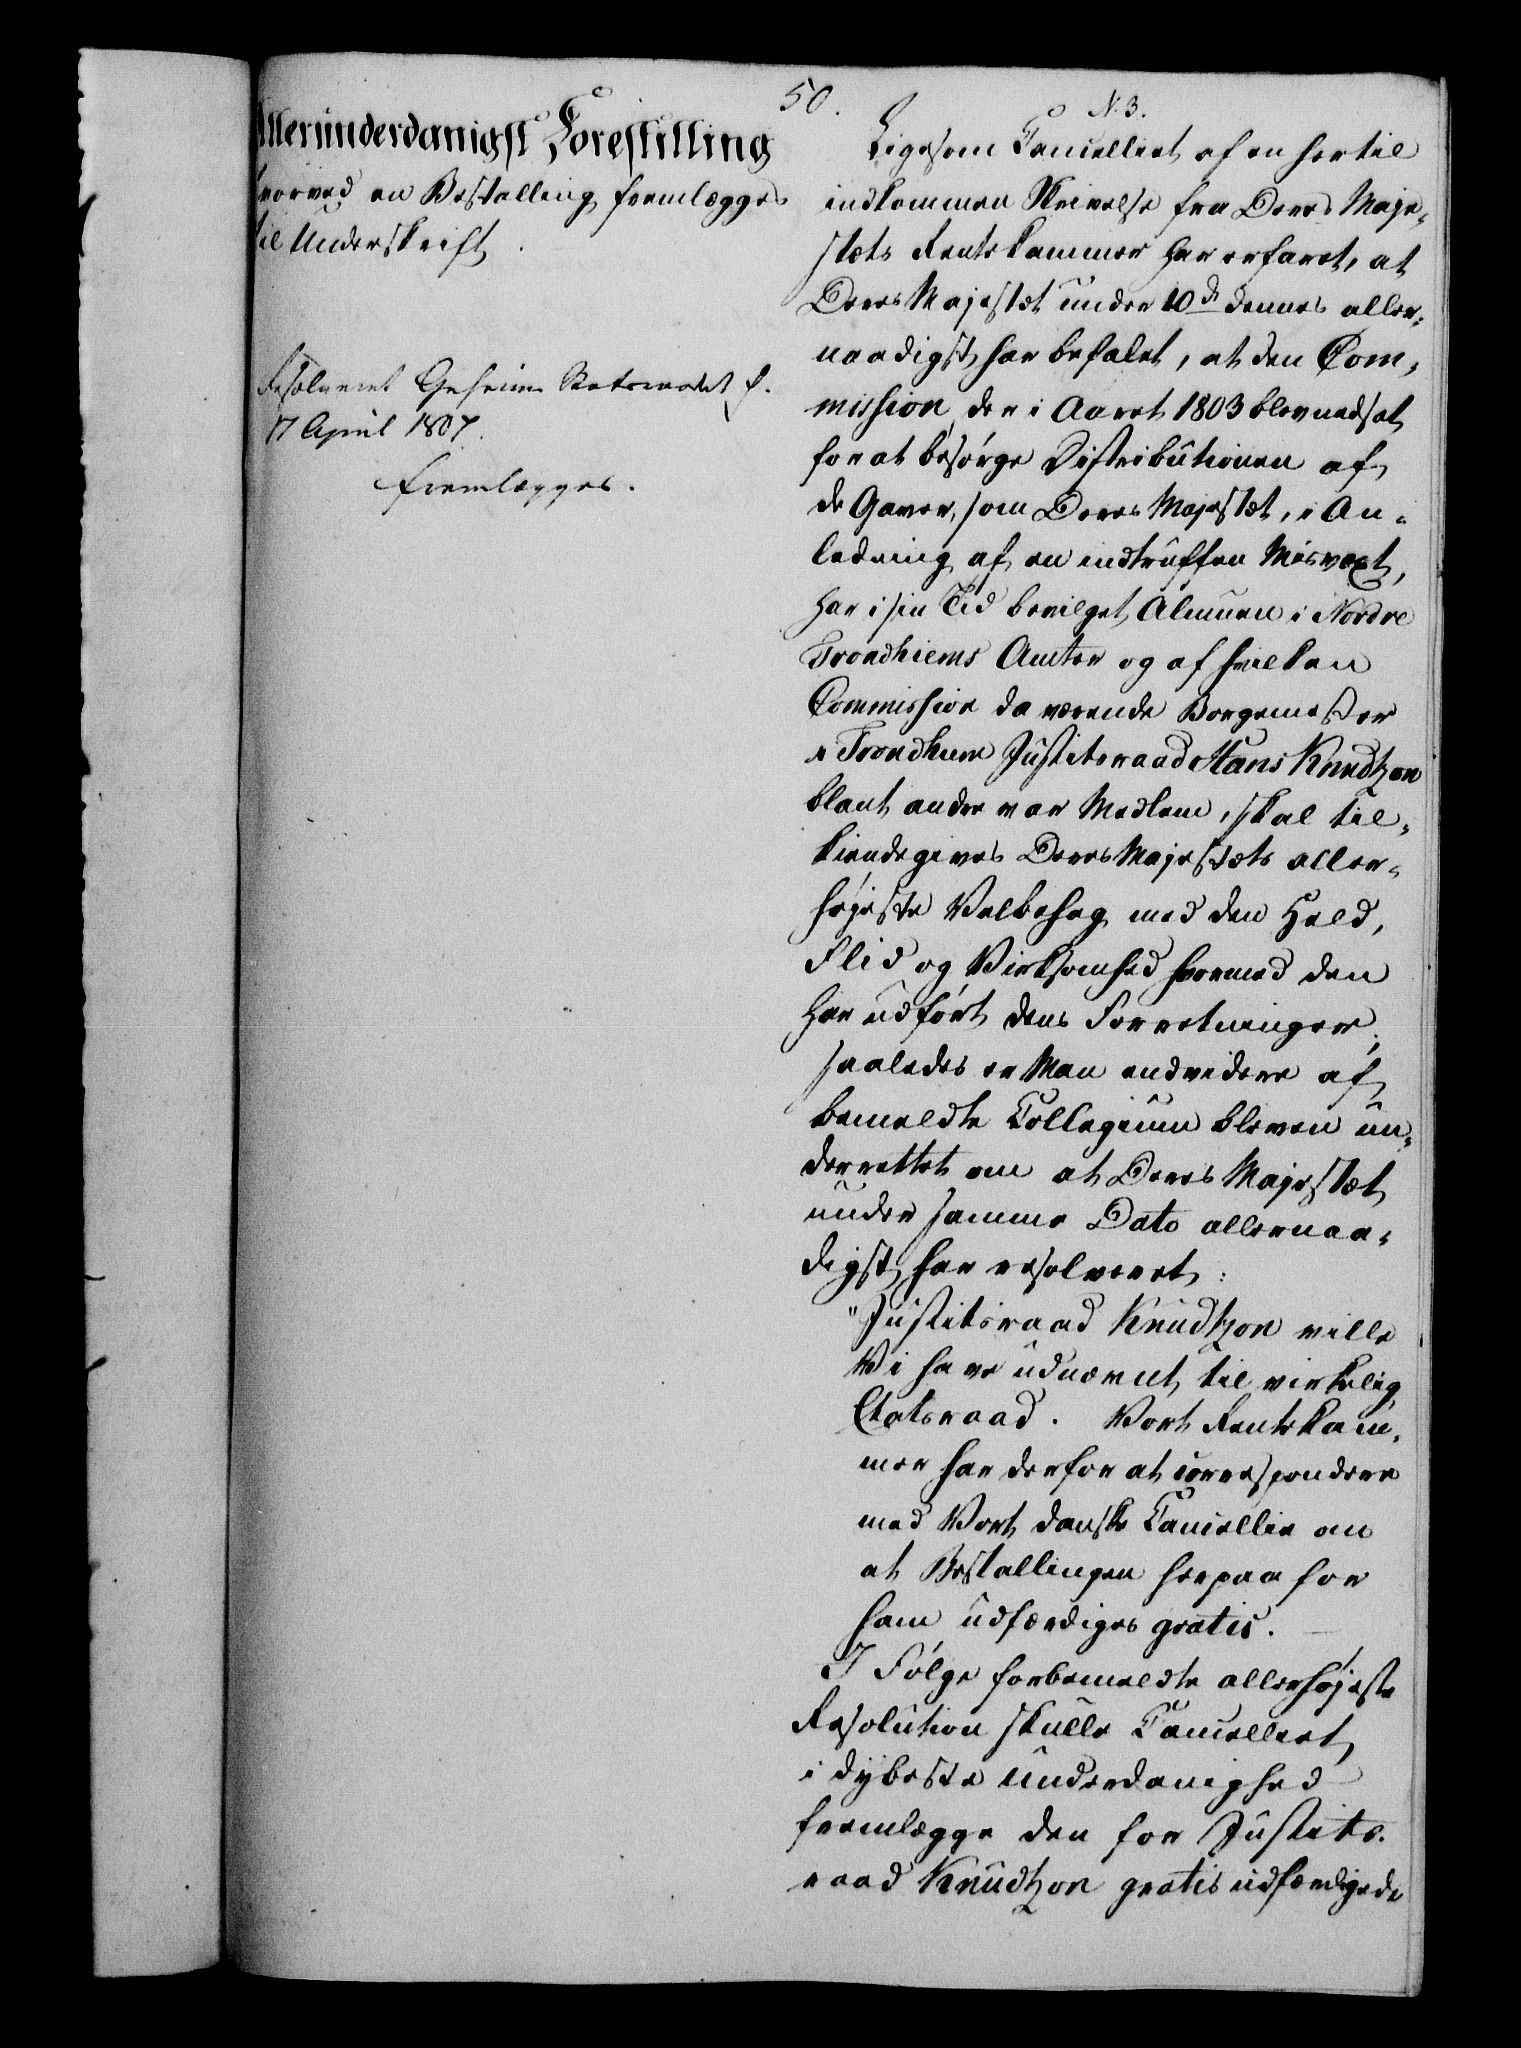 50.
Allerunderdanigst Forestilling
hvorved en Bestalling fremlægges
til Underskrift.
Resolveret Geheime Statsraadet d.
17 April 1807.
fremlægges.
N. 3.
Ligesom Cancelliet af en hertil
indkommen Skrivelse fra Deres Maje-
stæts Rentekammer har erfaret, at
Deres Majestæt under 10de dennes aller-
naadigst har befalet, at den Com-
mission, der i Aaret 1803 blev nedsat
for at besørge Distributionen af
de Gaver, som Deres Majestæt, i An-
ledning af en indtruffen Misvæxt,
har i sin Tid bevilget Almuen i Nordre
Trondhiems Amter og af hvilken
Commission da værende Borgemester
i Trondhiem Justitsraad Hans Knudtzon
blant andre var Medlem, skal til-
kiendegives Deres Majestæts aller-
højeste Velbehag med den Held,
Flid og Virksomhed hvormed den
har udført dens Forretninger,
saaledes er Man endvidere af
bemeldte Collegium bleven un-
derrettet om at Deres Majestæt
under samme Dato allernaa-
digst har resolveret:
"Justitsraad Knudtzon ville
Vi have udnævnt til virkelig
Etatsraad. Vort Rentekam-
mer har derfor at correspondere
med Vort danske Cancellie om
at Bestallingen herpaa for
ham udfærdiges gratis.
I Følge forbemeldte allerhøjeste
Resolution skulle Cancelliet
i dybeste Underdanighed
fremlægge den for Justits-
raad Knudtzon gratis udfærdigede